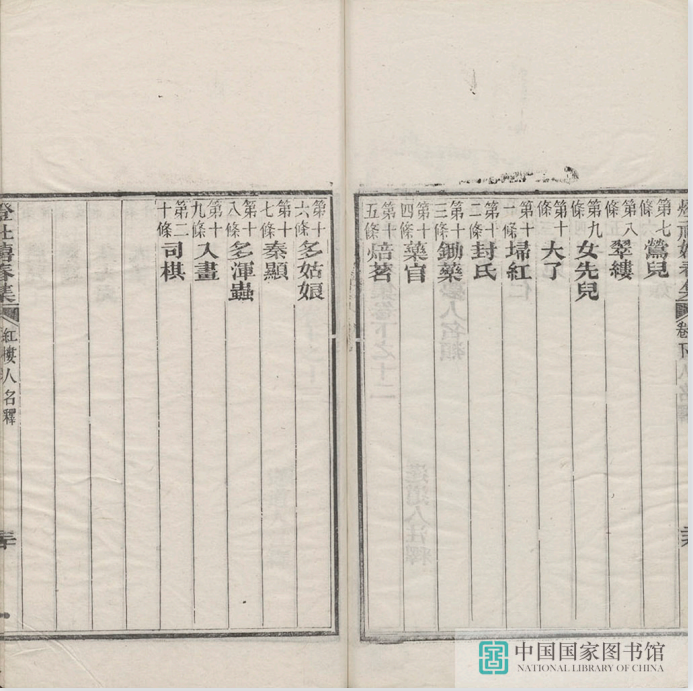 第七條 鶯兒
第八條 翠縷
第九條 女先兒
第十條 大了
第十一條 埽紅
第十二條 封氏
第十三條 鋤藥
第十四條 藥官
第十五條 焙茗
第十六條 多姑娘
第十七條 秦顯
第十八條 多渾蟲
第十九條 入畫
第二十條 司棋
紅樓人名釋
中国国家图书馆
NATIONAL LIBRARY OF CHINA